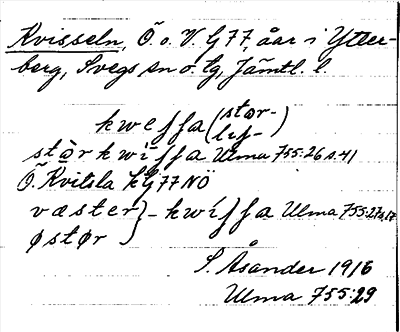 Kvisseln, Ö. o. V. G77, åar i Ytter-
berg, Svegs sn o. tg, Jämtl. l.
kweſſa (stør-
liſ-)
størkwiſſa Ulma 755:26 s. 41
Ö. Kvitsla kG77NÖ
væster} - kwiſſa Ulma 755:27 s. 17
østør
S. Åsander 1916
Ulma 755:29